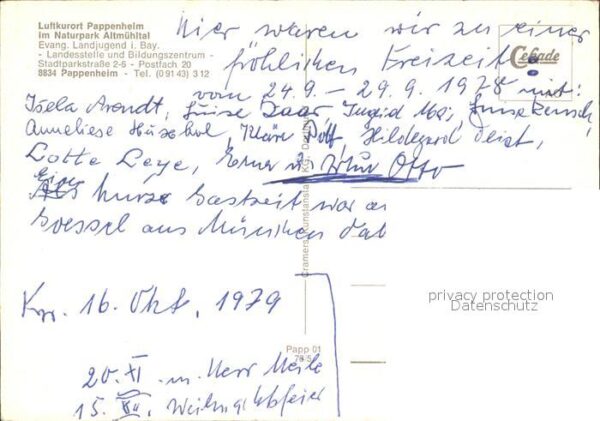 Luftkurort Pappenheim
im Naturpark Altmühltal
Evang. Landjugend i. Bay.
- Landesstelle und Bildungszentrum -
Stadtparkstraße 2-6 - Postfach 20
8834 Pappenheim - Tel. (0 91 43) 3 12
Hier waren wir zu einer
fröhlichen Freizeit
vom 24.9. - 29.9. 1978 mit:
Isela Arendt, Luise Zaar, Ingrid
Anneliese Kläre Pott, Hildegard
Lotte Leye, Erna u. Artur Otto
Eine kurze Gastzeit war
Goessel aus München
16. Okt. 1979
20. XI m. Herr Meile
15. XII. Weihnachtsfeier
Cekade
Cramers Kunstanstalt KG. Dortmund
Papp 01
privacy protection
Datenschutz